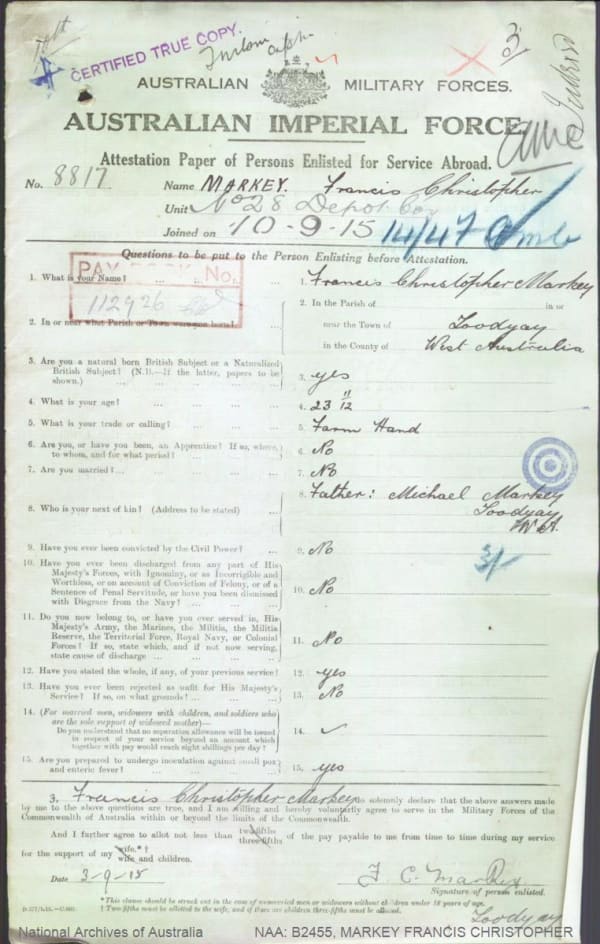 CERTIFIED TRUE COPY.
3
AUSTRALIAN MILITARY FORCES.
AUSTRALIAN IMPERIAL FORCE
Attestation Paper of Persons Enlisted for Service Abroad.
No. 8817. Name MARKEY. Francis Christopher
Unit No 28 Depot Coy
Joined on 10-9-15 14/47
Questions to be put to the Person Enlisting before Attestation.
PAY BOOK No.
112926
1. What is your Name? ... ... ... 1. Francis Christopher Markey
2. In or near what Parish or Town were you born? ... 2. In the Parish of in or
near the Town of Toodyay
in the County of West Australia
3. Are you a natural born British Subject or a Naturalized
British Subject? (N.B.—If the latter, papers to be
shown.) ... ... ... ... 3. yes
4. What is your age? ... ... ... 4. 23 11/12
5. What is your trade or calling? ... ... ... 5. Farm Hand
6. Are you, or have you been, an Apprentice? If so, where,
to whom, and for what period? ... ... ... 6. No
7. Are you married? ... ... ... ... 7. No
8. Who is your next of kin? (Address to be stated) ... 8. Father: Michael Markey
Toodyay
W A.
9. Have you ever been convicted by the Civil Power? ... 9. No
5/-
10. Have you ever been discharged from any part of His
Majesty's Forces, with Ignominy, or as Incorrigible and
Worthless, or on account of Conviction of Felony, or of a
Sentence of Penal Servitude, or have you been dismissed
with Disgrace from the Navy? ... ... ... 10. No
11. Do you now belong to, or have you ever served in, His
Majesty's Army, the Marines, the Militia, the Militia
Reserve, the Territorial Force, Royal Navy, or Colonial
Forces? If so, state which, and if not now serving,
state cause of discharge ... ... ... ... 11. No
12. Have you stated the whole, if any, of your previous service? 12. yes
13. Have you ever been rejected as unfit for His Majesty's
Service? If so, on what grounds? ... ... ... 13. No
14. (For married men, widowers with children, and soldiers who
are the sole support of widowed mother)—
Do you understand that no separation allowance will be issued
in respect of your service beyond an amount which
together with pay would reach eight shillings per day? 14. ✓
15. Are you prepared to undergo inoculation against small pox
and enteric fever? ... ... ... ... 15. yes
3. Francis Christopher Markey do solemnly declare that the above answers made
by me to the above questions are true, and I am willing and hereby voluntarily agree to serve in the Military Forces of the
Commonwealth of Australia within or beyond the limits of the Commonwealth.
And I further agree to allot not less than two-fifths
three-fifths of the pay payable to me from time to time during my service
for the support of my wife.*†
wife and children.
Date 3-9-15 F. C. Markey
Signature of person enlisted.
*This clause should be struck out in the case of unmarried men or widowers without children under 18 years of age.
† Two-fifths must be allotted to the wife, and if there are children three-fifths must be allotted.
Toodyay
National Archives of Australia NAA: B2455, MARKEY FRANCIS CHRISTOPHER